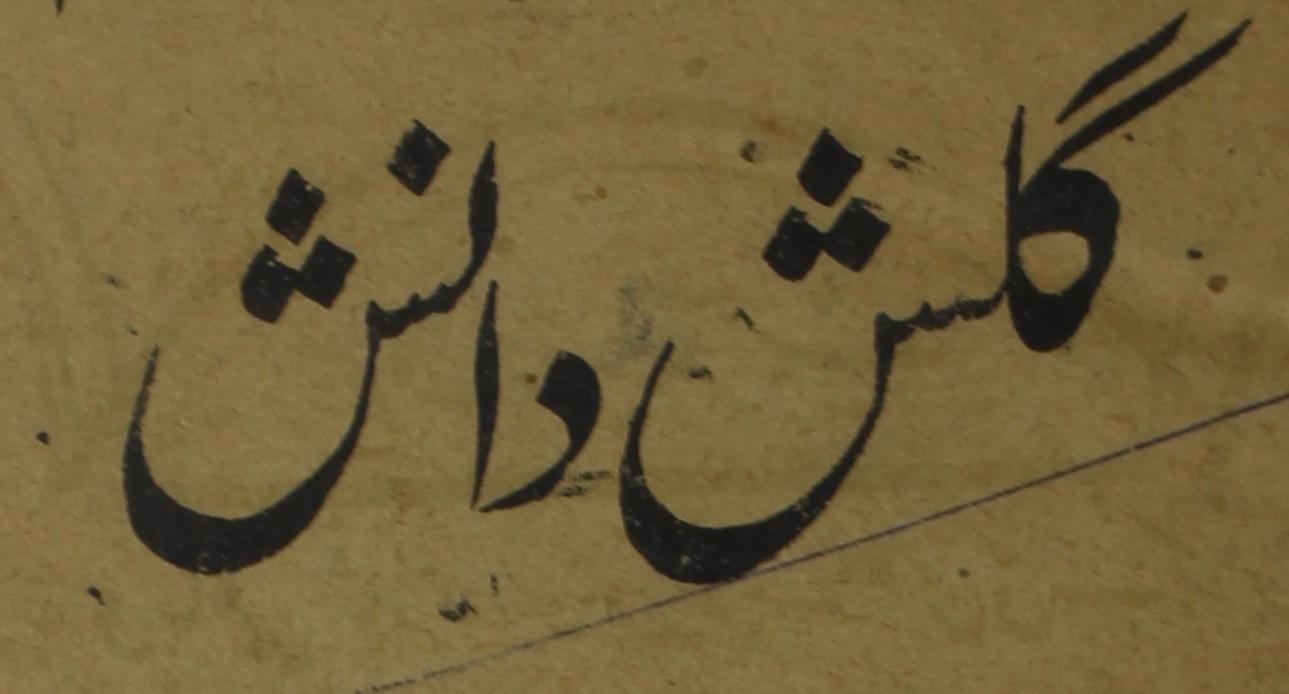 گلشن دانش